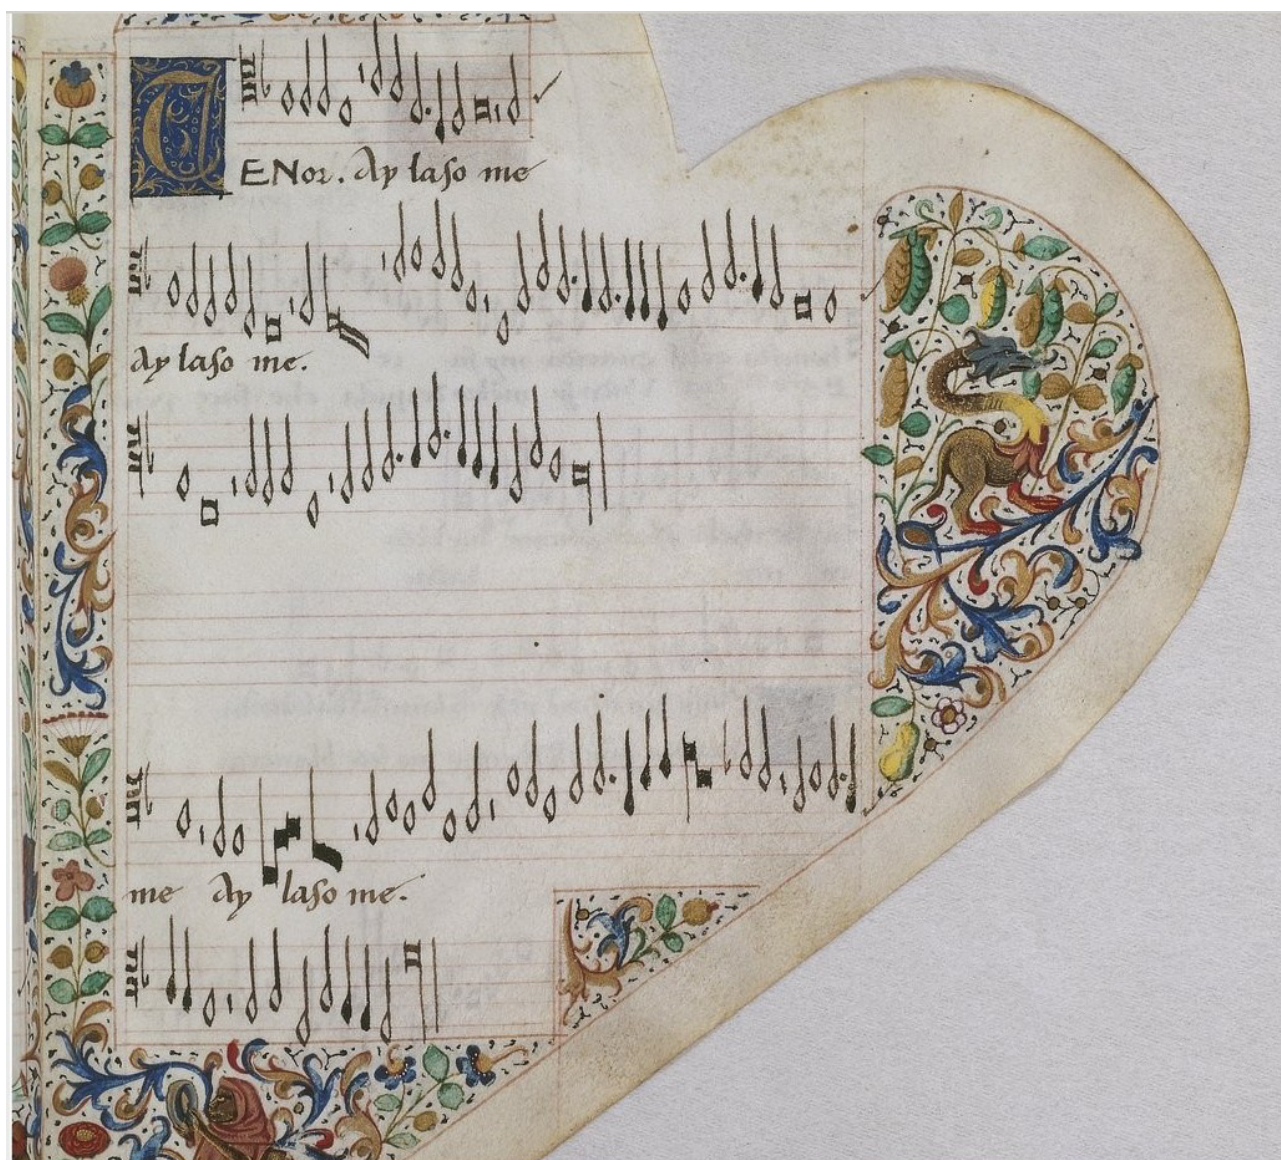 TENor. Ay laſo me
Ay laſo me.
me Ay laſo me.